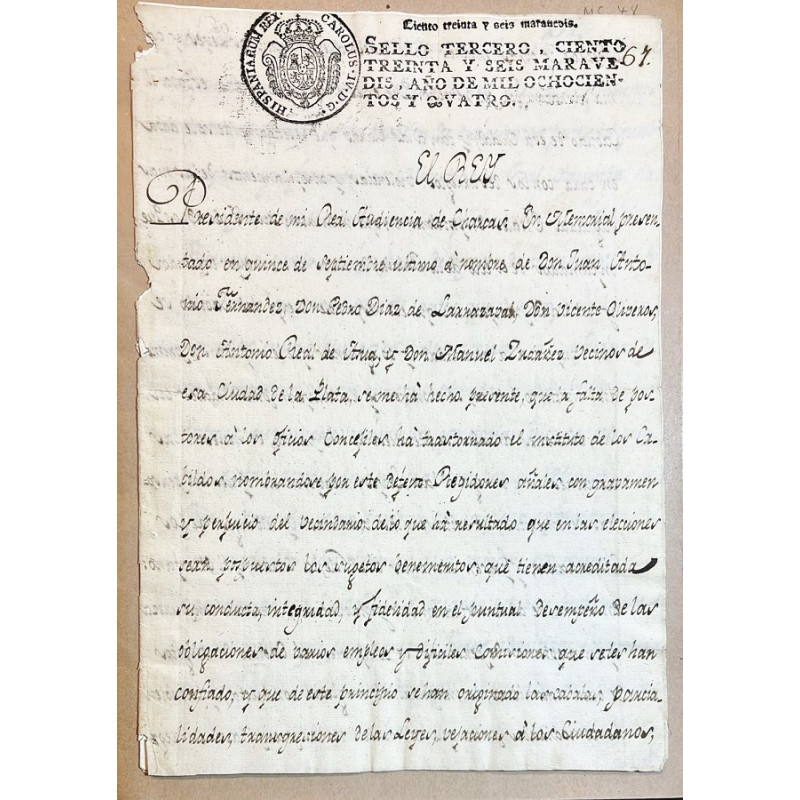 MC 48
Ciento treinta y seis maravedis.
HISPANIARUM REX. CAROLUS. IV. D. G.
SELLO TERCERO, CIENTO
TREINTA Y SEIS MARAVE-
DIS, AÑO DE MIL OCHOCIEN-
TOS Y QVATRO.
67.
El REY.
Presidente de mi Real Audiencia de Charcas. En Memorial presen-
tado en quince de Septiembre ultimo á nombre de Don Juan Anto-
nio Fernandez, Don Pedro Diaz de Larrazaval, Don Vicente Oliveros,
Don Antonio Real de Azua, y Don Manuel vecinos de
esa Ciudad de la Plata, se me há hecho presente, que la falta de pos-
tores á los oficios Concejiles há trastornado el instituto de los Ca-
bildos, nombrandose por este defecto Regidores añales con gravamen
y perjuicio del vecindario de lo que há resultado que en las elecciones
sean pospuestos los sugetos benemeritos, que tienen acreditada
su conducta, integridad, y fidelidad en el puntual desempeño de las
obligaciones de varios empleos y dificiles comisiones que seles han
confiado, y que de este principio se han originado las cabalas, parcia-
lidades, transgresiones de las Leyes, vejaciones á los Ciudadanos,